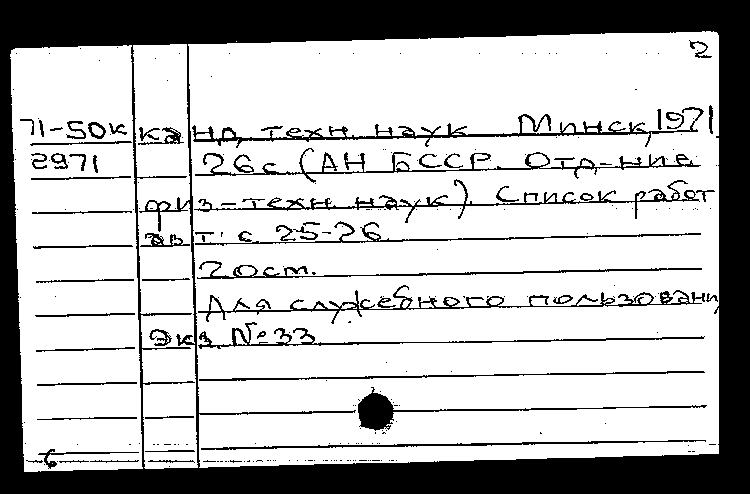 2
71-50к канд. техн. наук Минск, 1971
2971 26с (АН БССР. Отд-ние
физ-техн. наук). Список работ
авт: с. 25-26.
20cm.
Для служебного пользовани
Экз. №33
6